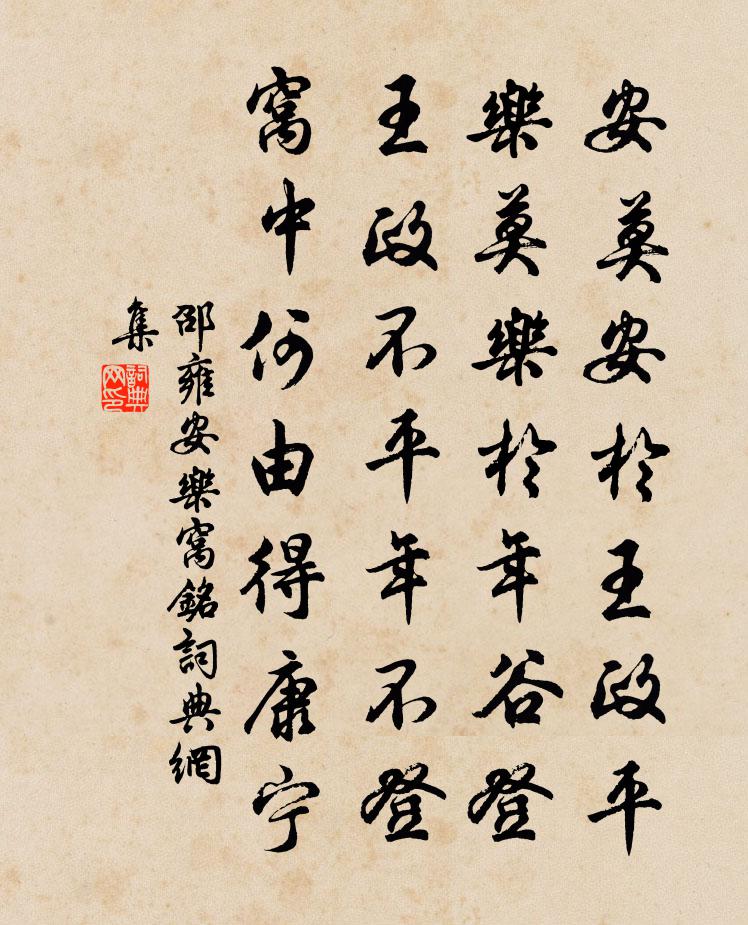 安莫安於王政平
樂莫樂於年谷登
王政不平年不登
窩中何由得康宁
邵雍安樂窩銘詞典網
集
詞典
网印